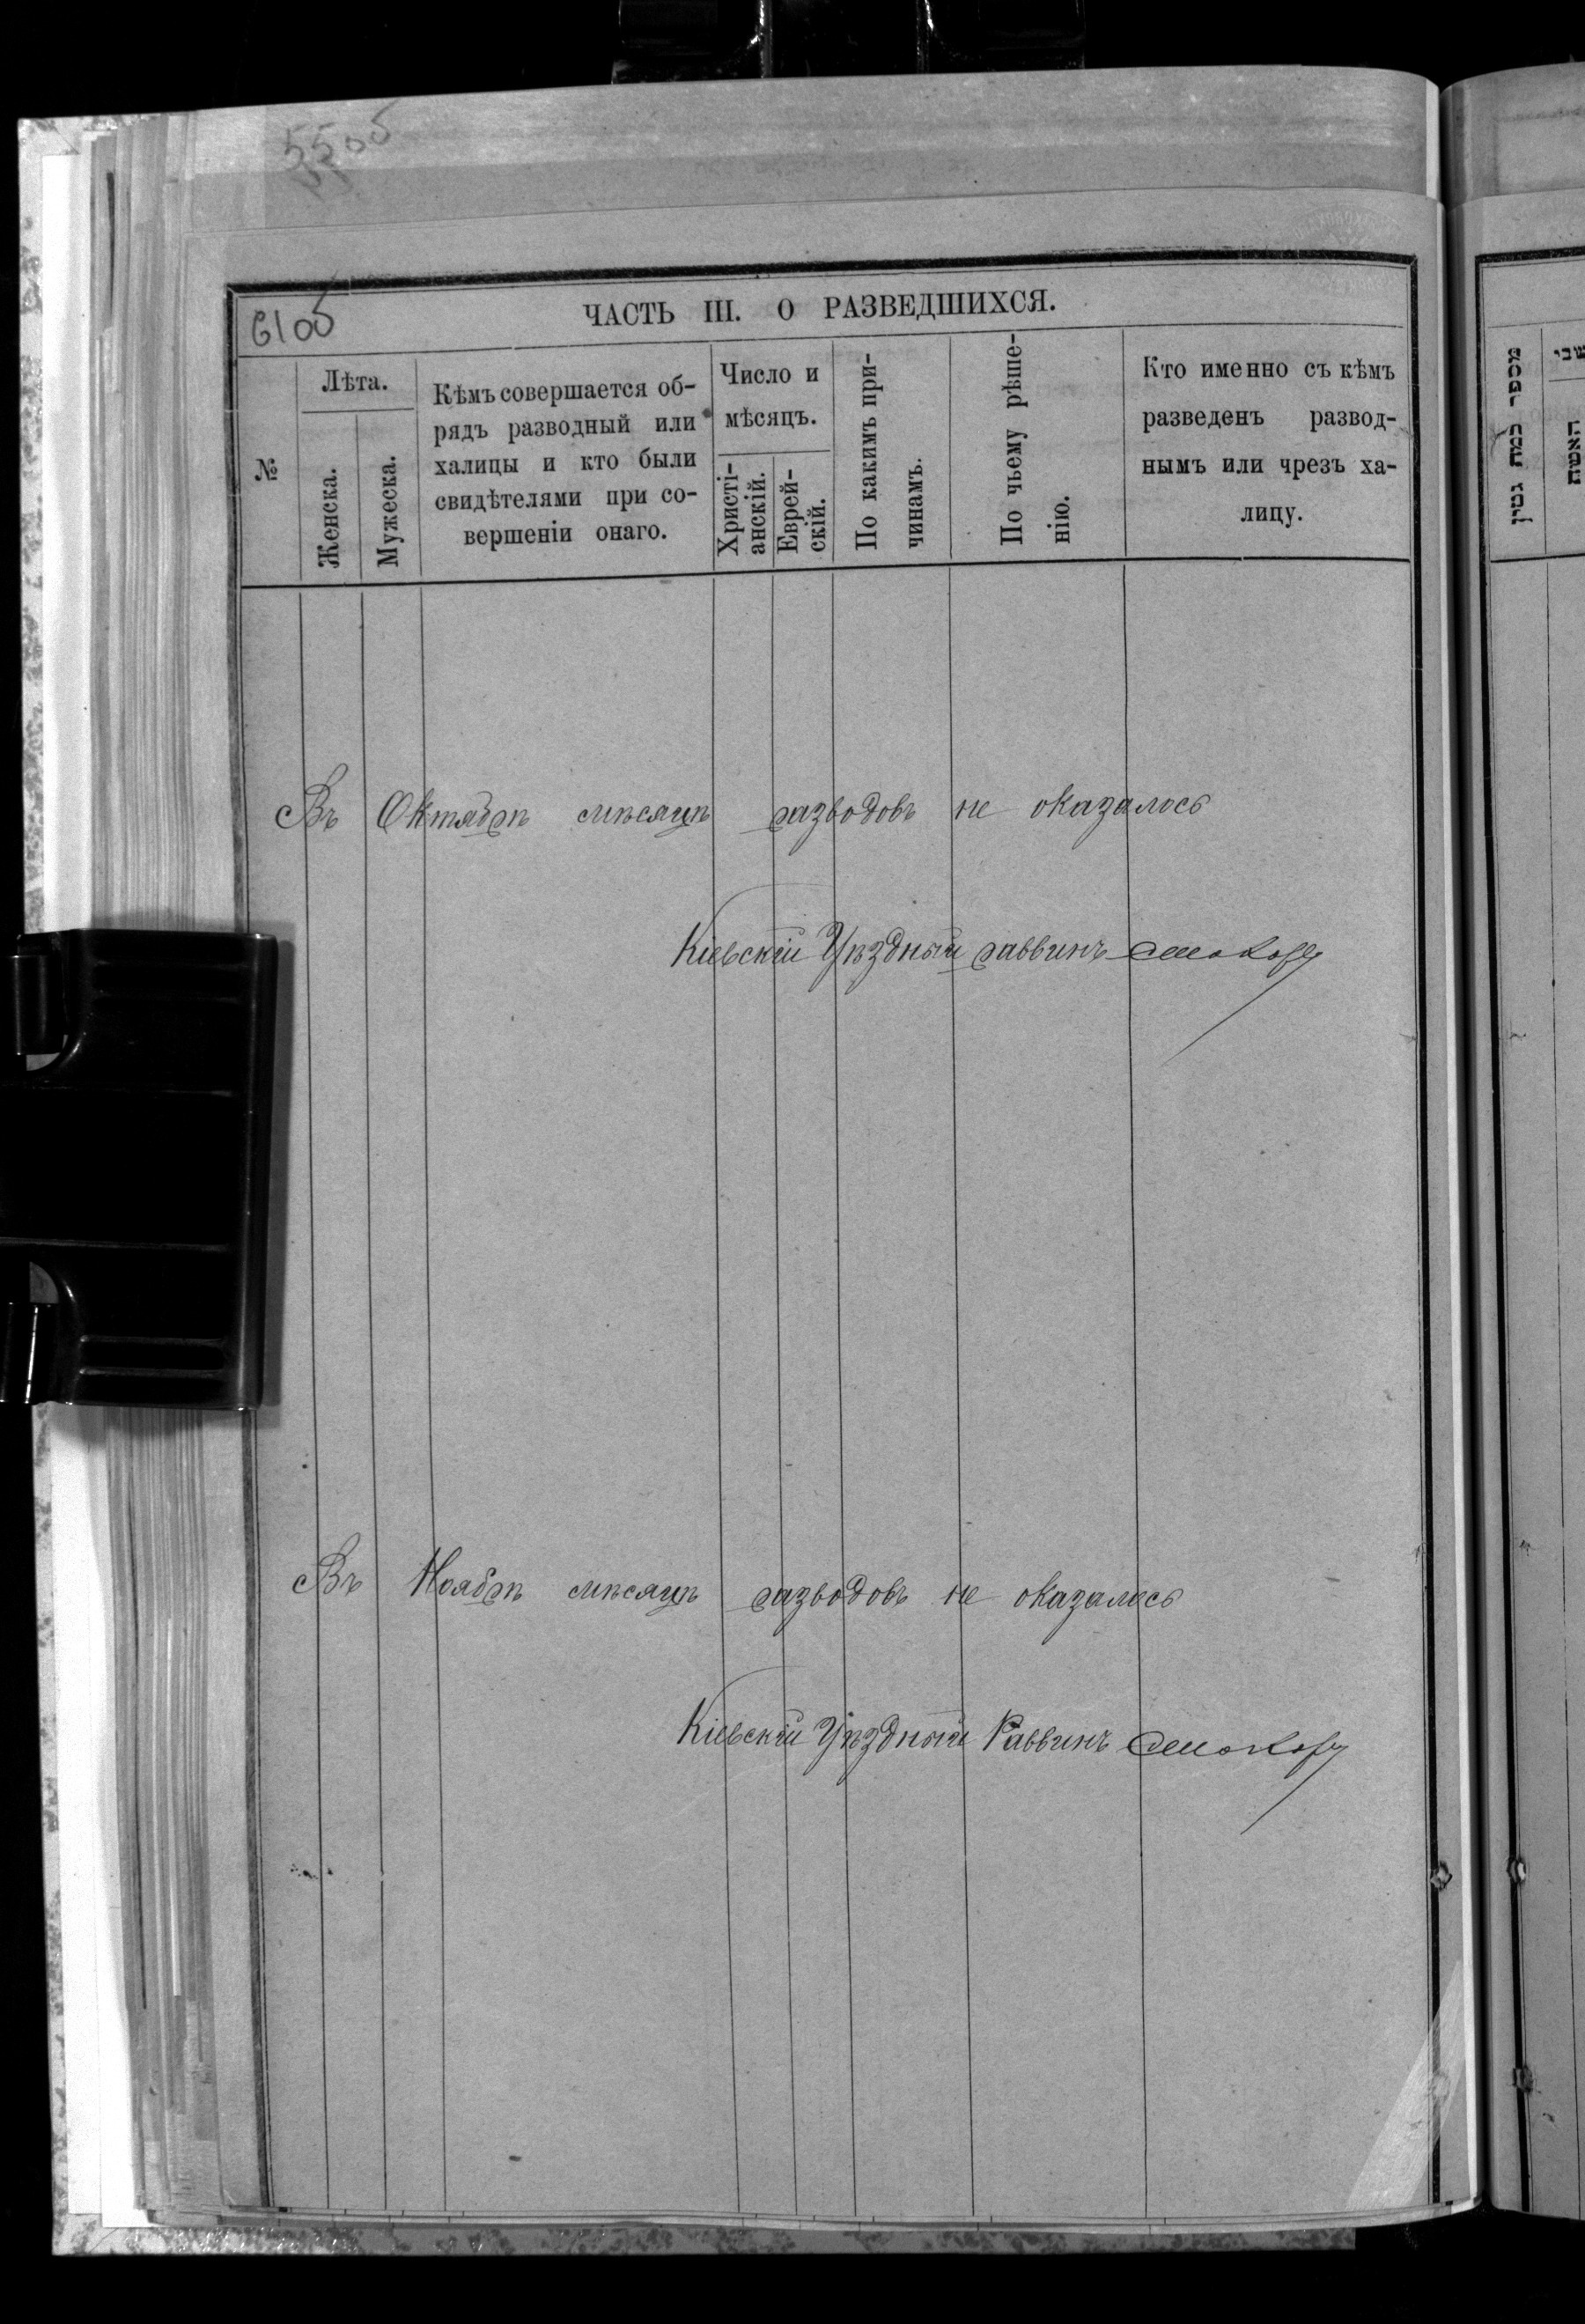 55об
61об
ЧАСТЬ III. О РАЗВЕДШИХСЯ.
№
Лѣта.
Женска.
Мужеска.
Кѣмъ совершается об-
рядъ разводный или
халицы и кто были
свидѣтелями при со-
вершеніи онаго.
Число и
мѣсяцъ.
Христі-
анскій.
Еврей-
скій.
По какимъ при-
чинамъ.
По чьему рѣше-
нію.
Кто именно съ кѣмъ
разведенъ развод-
нымъ или чрезъ ха-
лицу.
Въ Октябрѣ мѣсяцѣ разводовъ не оказалось
Кіевскій Уѣздный раввинъ
Въ Ноябрѣ мѣсяцѣ разводовъ не оказалось
Кіевскій Уѣздный Раввинъ
מספר כמת גטין
האשה